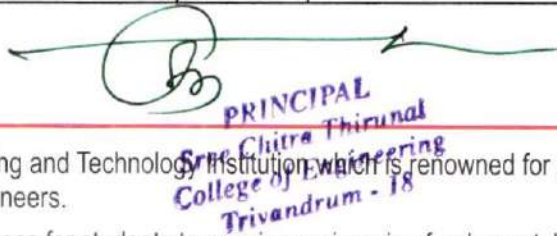 PRINCIPAL
Sree Chitra Thirunal
College of Engineering
Trivandrum - 18
ng and Technology Institution which is renowned for
neers.